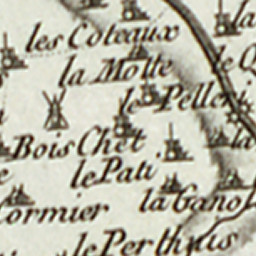 la
les Coteaux
la Motte
le
le Pelleri
la
Bois Chet
le Pati
Cormier
la Gano
le Perthuis